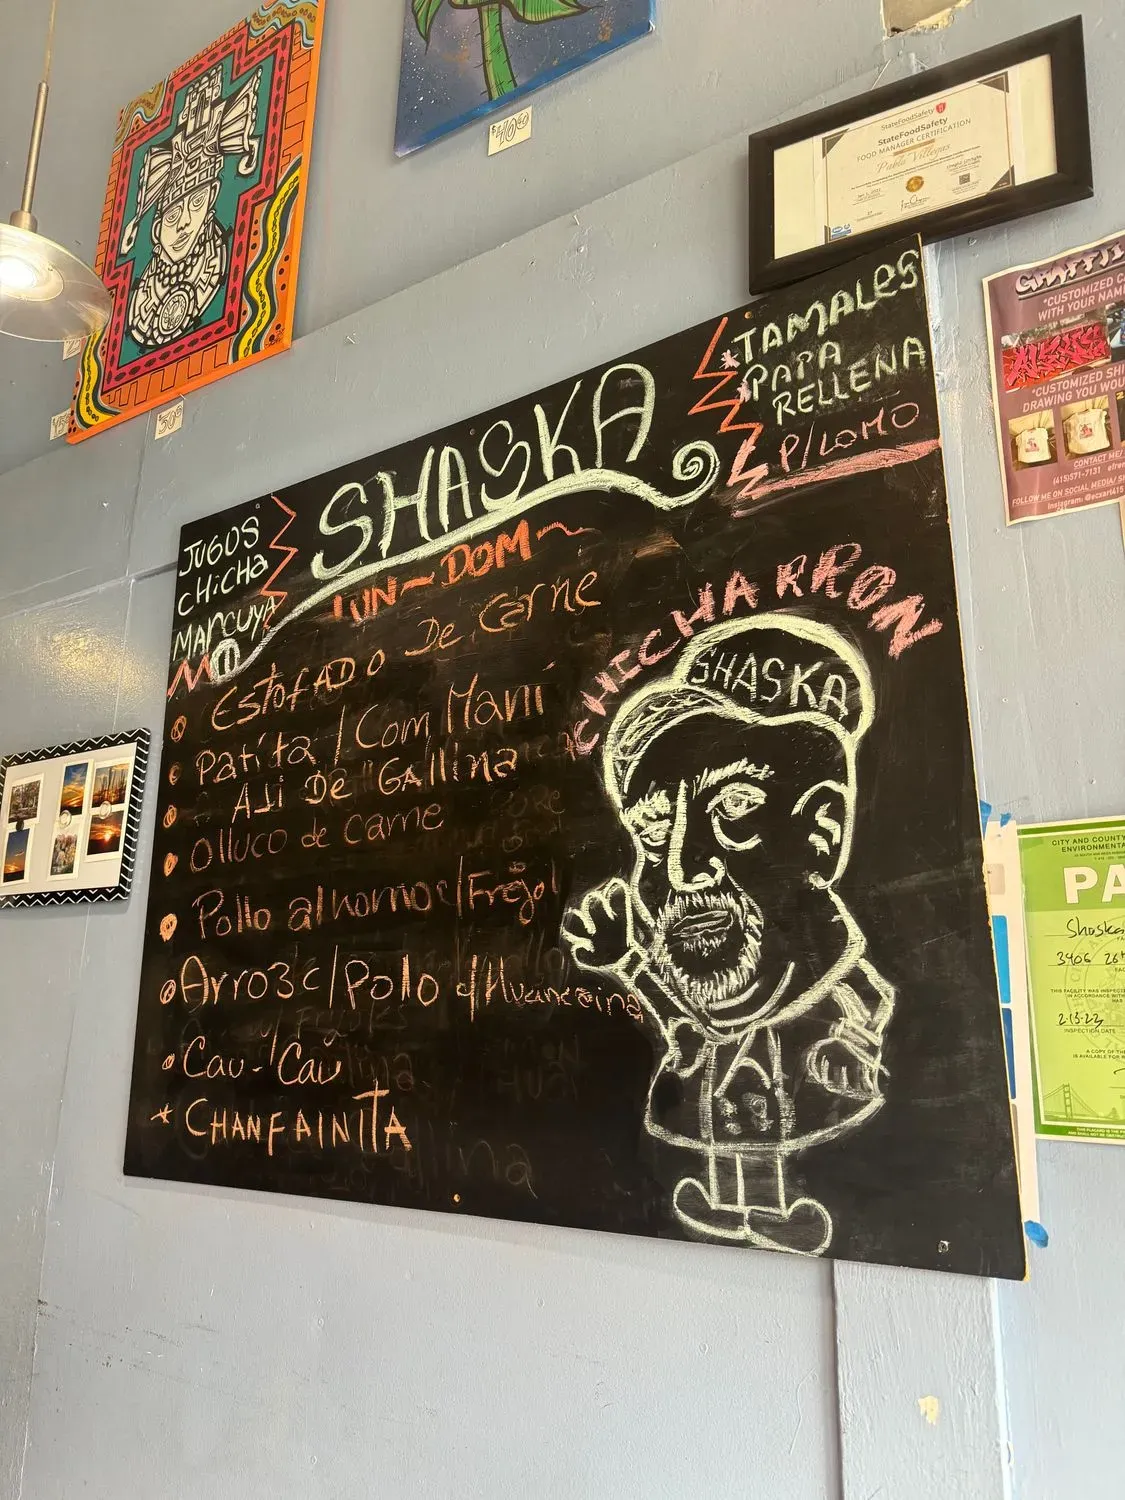 $40.00
StateFoodSafety
StateFoodSafety
FOOD MANAGER CERTIFICATION
Pablo Villegas
GRAFFITI
"CUSTOMIZED
WITH YOUR NAM
"CUSTOMIZED SHI
DRAWING YOU WOU
CONTACT ME/
(415)571-7131
FOLLOW ME ON SOCIAL MEDIA/
Instagram: @ecxart415
TAMALES
PAPA
RELLENA
P/LOMO
SHASKA
LUN-DOM
JUGOS
CHiCHa
MARCUYA
CHICHARRON
SHASKA
EstofADO De Carne
Patita / Com Maní
AJi De GAllina
Olluco de Carne
Pollo al horno c/Frejol
Arro3 c/Pollo c/Huancaina
Cau-Cau
CHANFAINITA
CITY AND COUNTY
ENVIRONMENTA
PA
Shaska
3406 26
THIS FACILITY WAS INSPECTE
IN ACCORDANCE WITH
2-15-23
INSPECTION DATE
A COPY OF TH
IS AVAILABLE FOR R